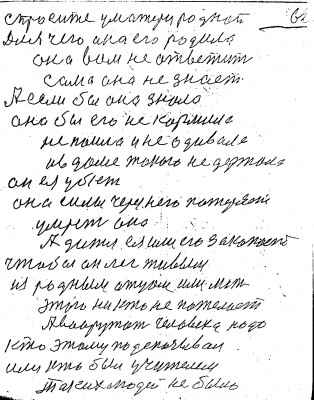 спросите у матери родной 62
Для чего она его родила
она вам не ответит
сама она не знает
А если бы она знала
она бы его не кормила
не поила и не одивала
и в доме такого не держала
он ея убьет
она силы через него потеряет
умрет она
А дитя ея или его закопает
чтобы он лег живым
из родным отцом или мат
этого никто не пожелает
А вооружат человека надо
кто этому подскочивал
или кто был учителем
таких людей не было